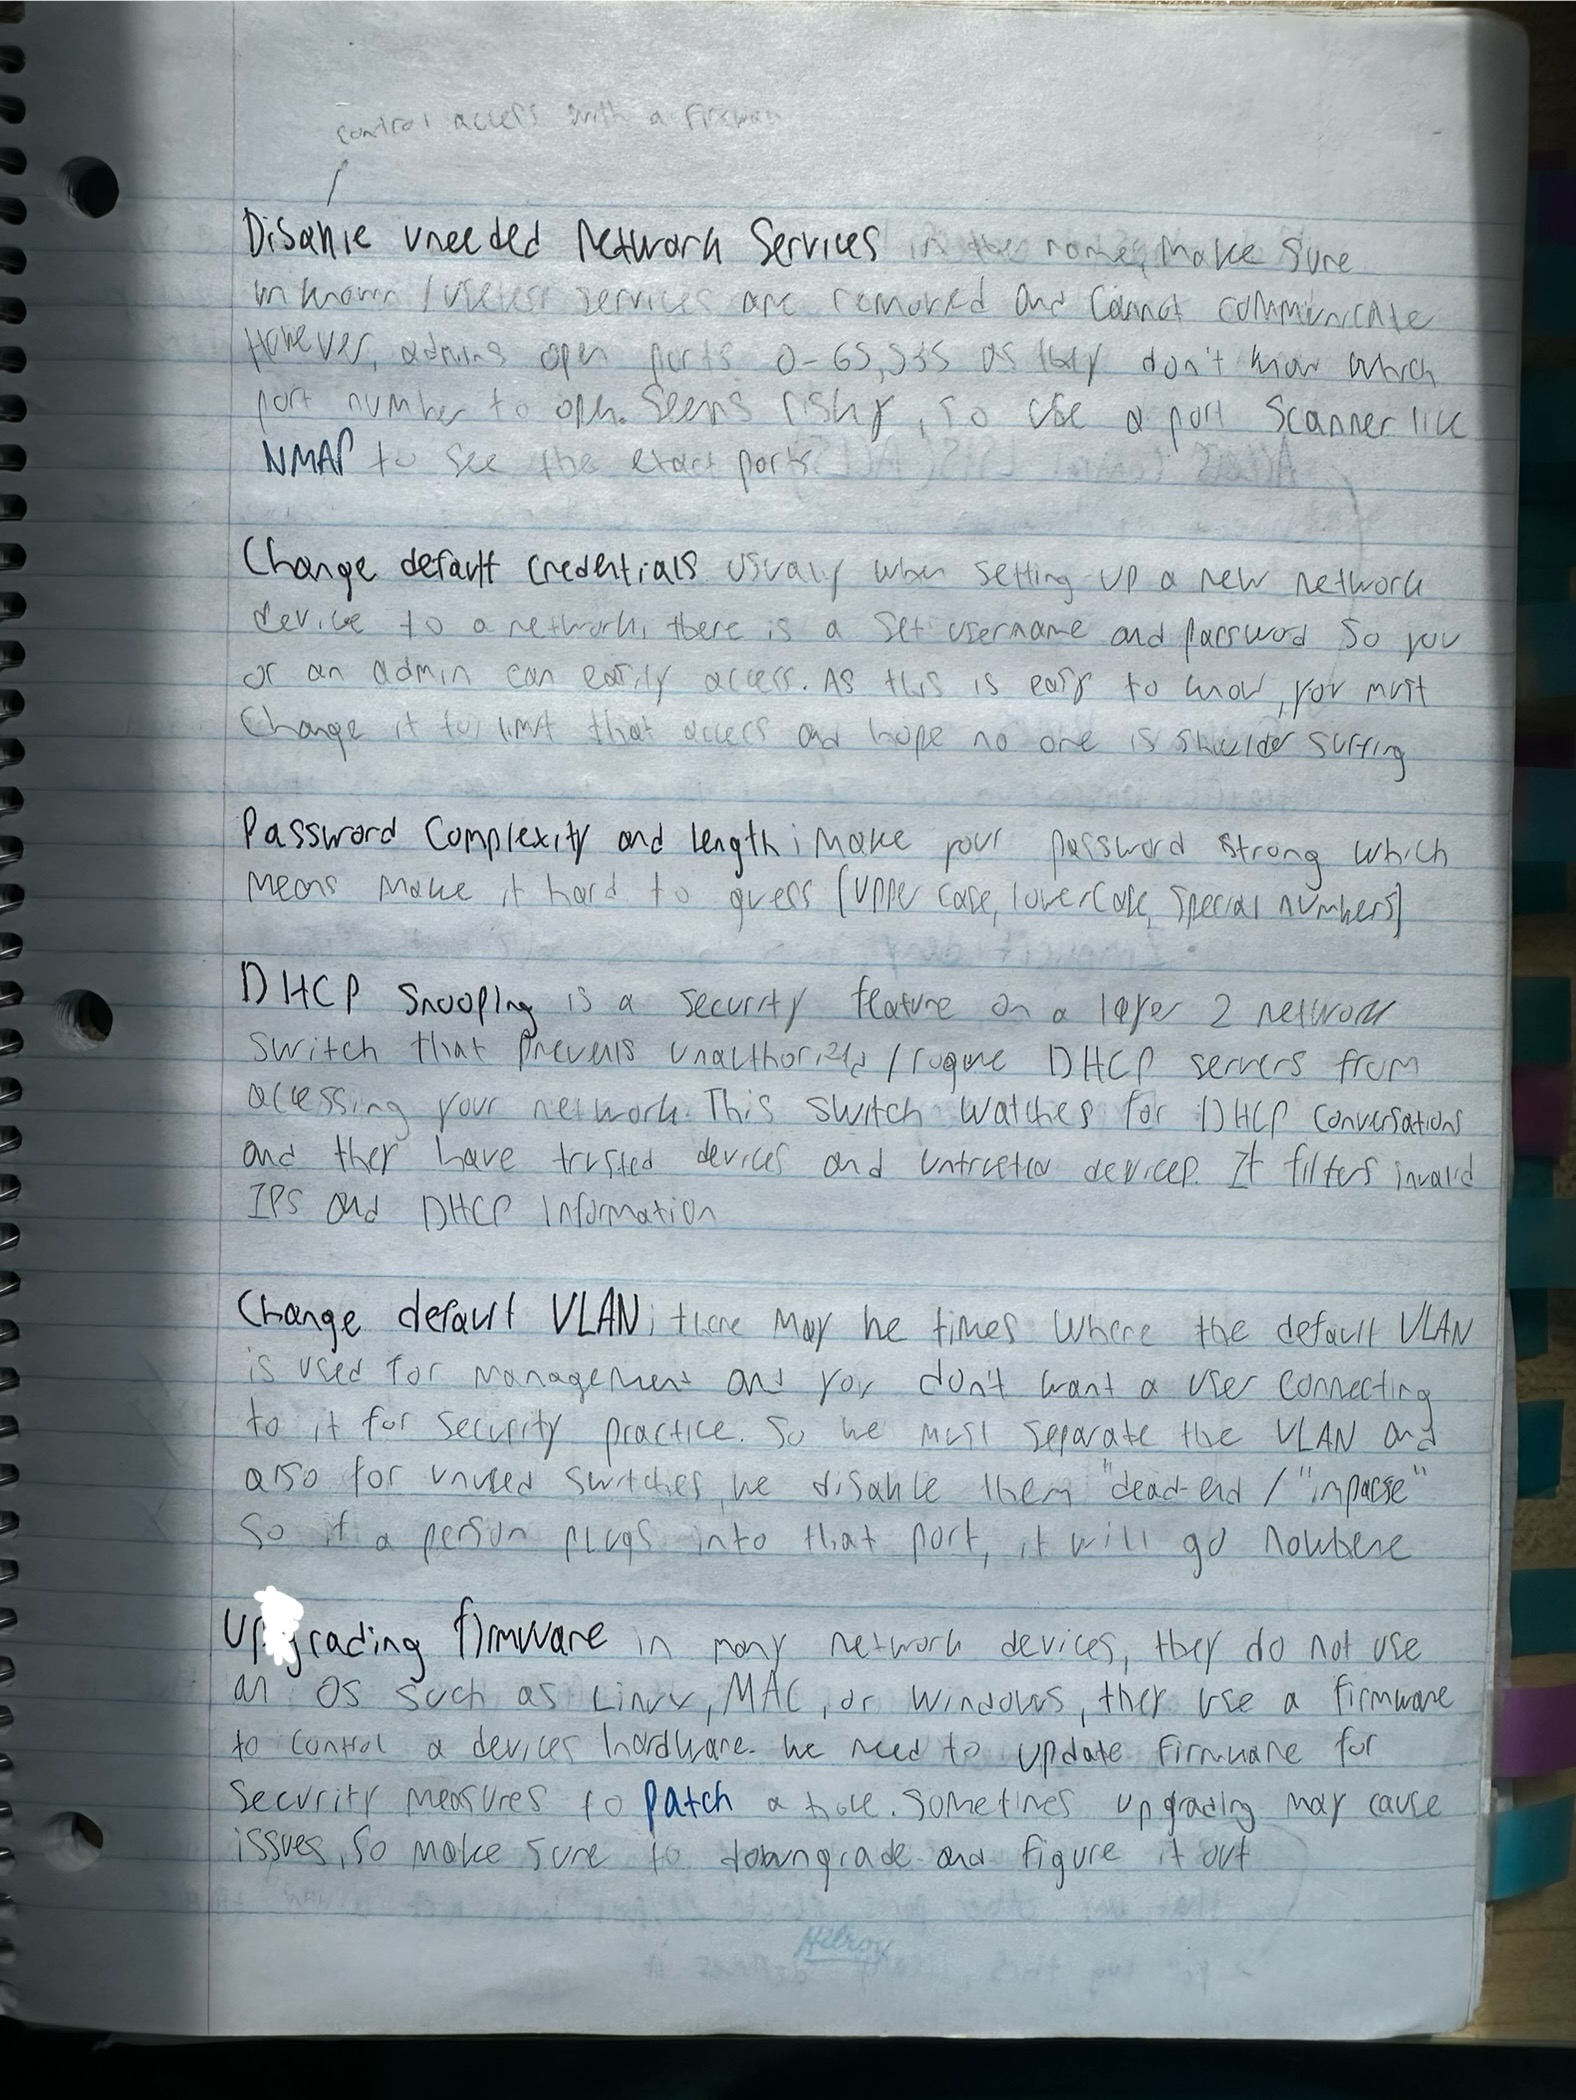 control access with a firewall
Disable uneeded Network Services in the name, make sure
unknown / useless services are removed and cannot communicate
However, admins open ports 0-65,535 as they don't know which
port number to open. Seems risky, so use a port scanner like
NMAP to see the exact ports
Change default credentials usualy when setting up a new network
device to a network, there is a set username and password so you
or an admin can easily access. As this is easy to know, you must
change it to limit that access and hope no one is shoulder surfing
Password Complexity and length; Make your password strong which
means make it hard to guess [upper case, lowercase, special numbers]
DHCP Snooping is a security feature on a layer 2 network
switch that prevents unauthorized / rogue DHCP servers from
accessing your network. This switch watches for DHCP conversations
and they have trusted devices and untrusted devices. It filters invalid
IPS and DHCP Information
Change default VLAN; there may be times where the default VLAN
is used for management and you don't want a user connecting
to it for security practice. So we must separate the VLAN and
also for unused switches, we disable them "dead-end / "impasse"
so if a person plugs into that port, it will go nowhere
Upgrading firmware in many network devices, they do not use
an OS such as Linux, MAC, or Windows, they use a firmware
to control a devices hardware. We need to update firmware for
security measures to patch a hole. Sometimes upgrading may cause
issues, so make sure to downgrade and figure it out
Hilroy